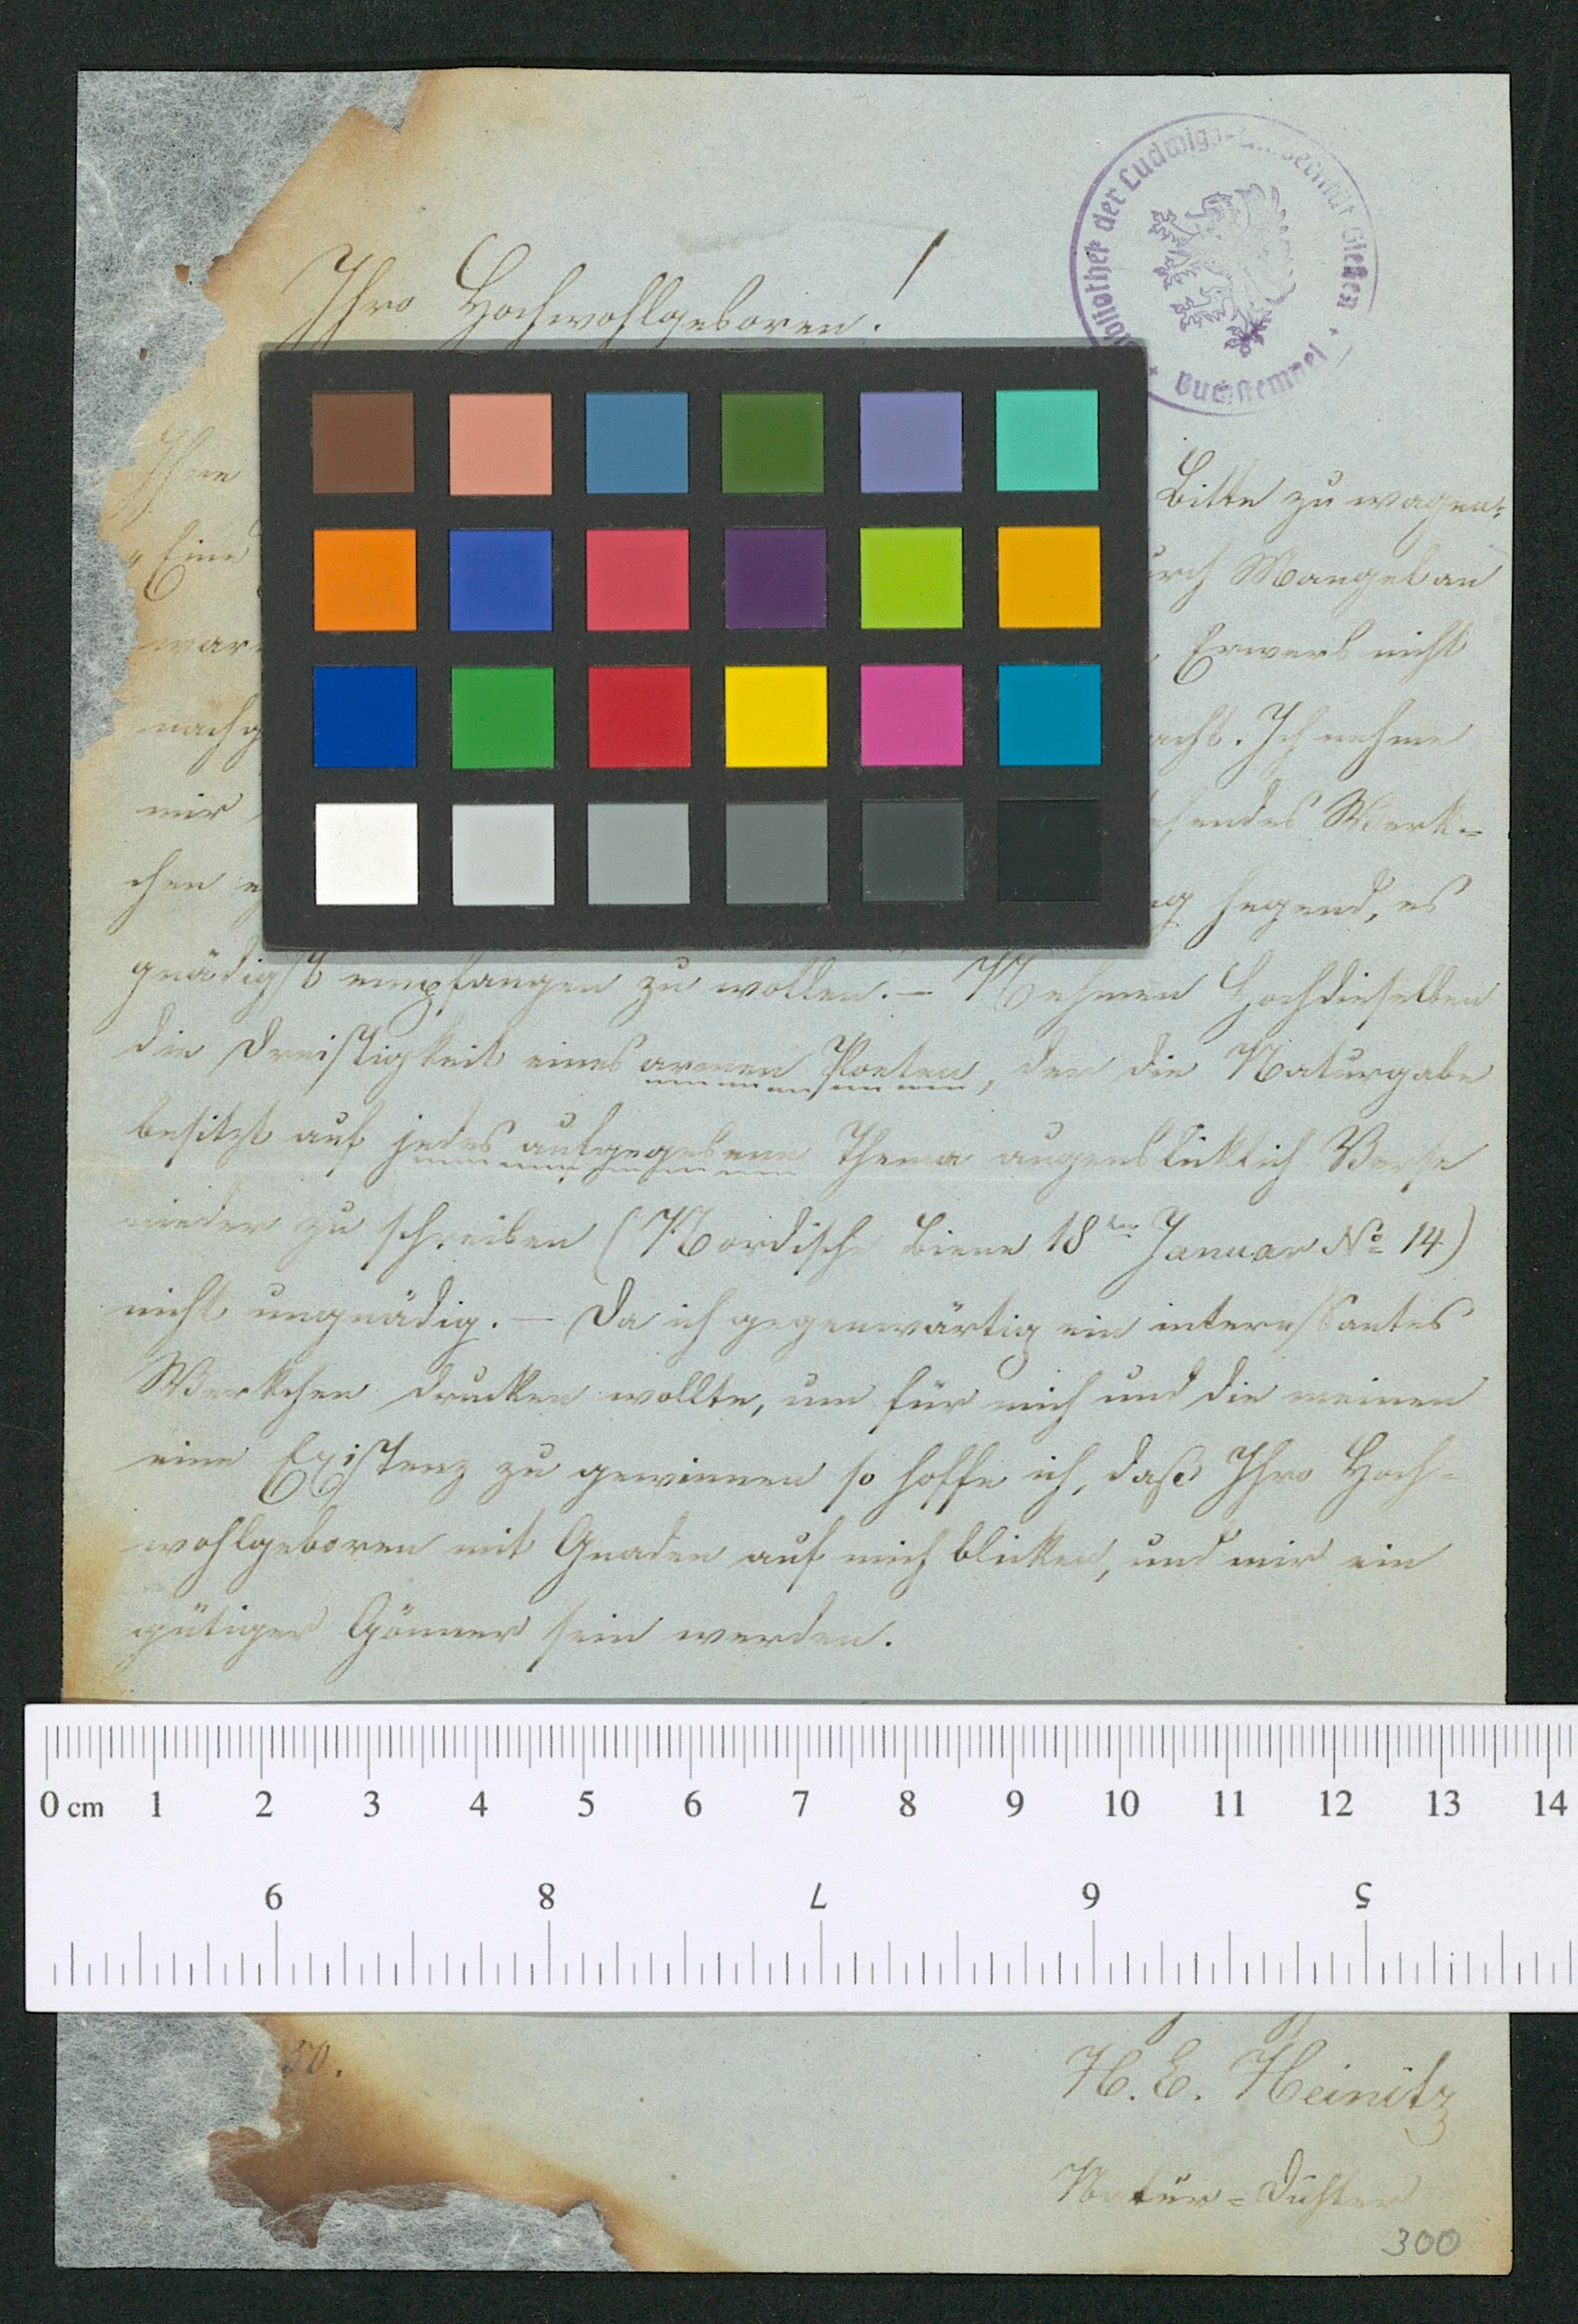 Bibliothek der Ludwigs-Universität Gießen
* Buchstempel *
Ihro Hochwohlgeboren!
Ihne Bitte zu wagen:
"Eine urch Mangel an
war Erwerb nicht
nachg acht. Ich nehme
mir hendes Werk=
chen eg g hegend, es
gnädigst empfangen zu wollen. — Nehmen Hochdieselben
die Dreistigkeit eines armen Poeten, der die Naturgabe
besitzt auf jedes aufgegebene Thema augenblicklich Verse
nieder zu schreiben (Nordische Biene 18ten Januar No 14)
nicht ungnädig. — Da ich gegenwärtig ein interessantes
Werkchen drucken wollte, um für mich und die meinen
eine Existenz zu gewinnen so hoffe ich, daß Ihro Hoch=
wohlgeboren mit Gnaden auf mich blicken, und mir ein
gütiger Gönner sein werden.
0 cm 1 2 3 4 5 6 7 8 9 10 11 12 13 14
9 8 7 6 5
50.
H. E. Heinitz
Natur=Dichter
300